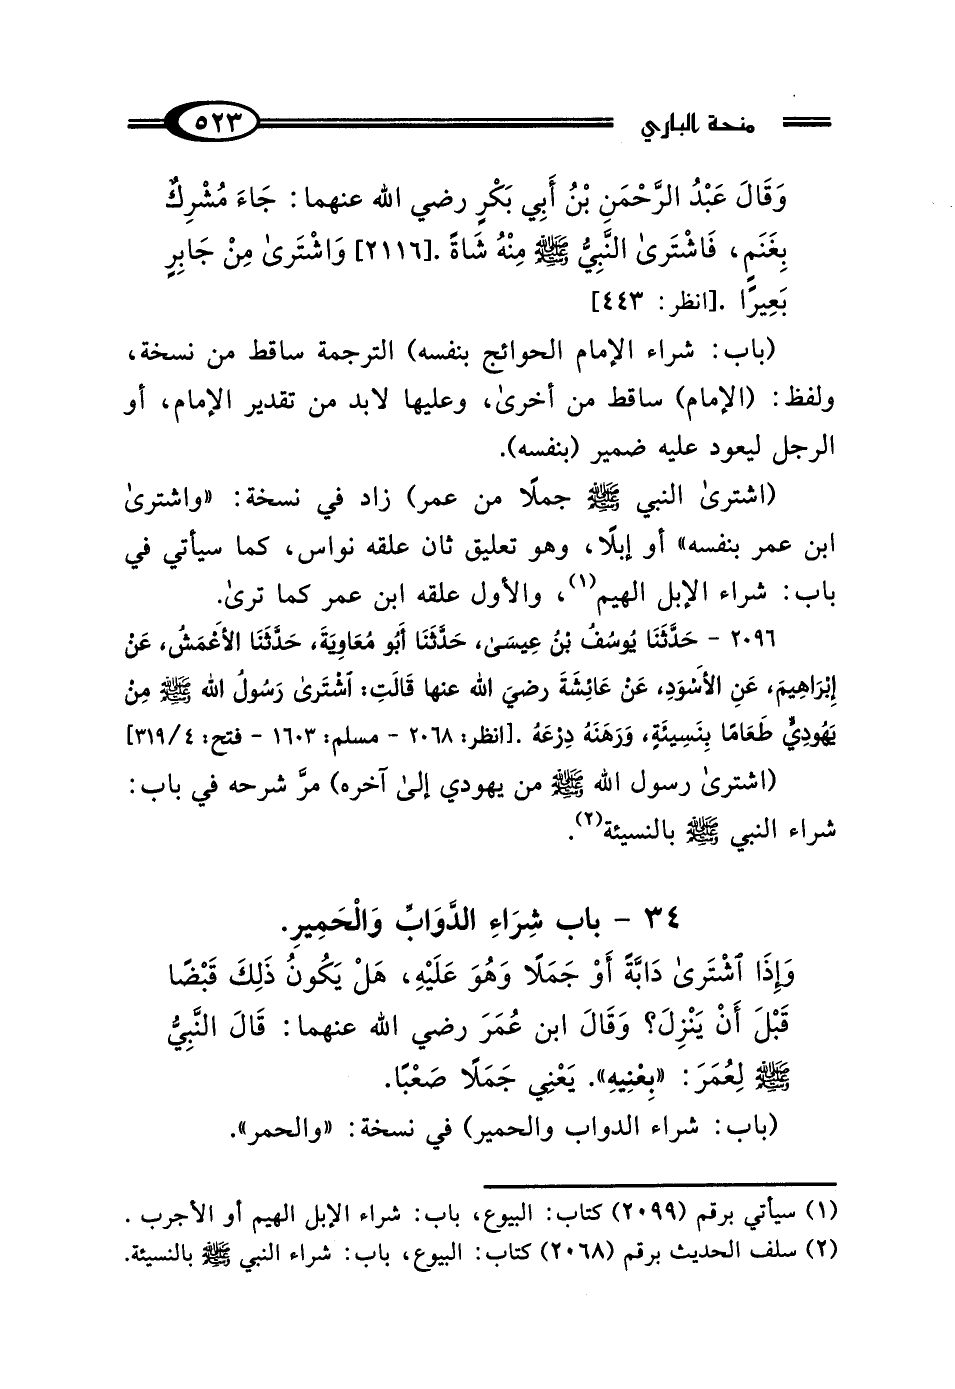 منحة الباري ٥٢٣
وَقَالَ عَبْدُ الرَّحْمَنِ بْنُ أَبِي بَكْرٍ رضي الله عنهما: جَاءَ مُشْرِكٌ
بِغَنَمٍ، فَاشْتَرىٰ النَّبِيُّ ﷺ مِنْهُ شَاةً .[٢١١٦] وَاشْتَرىٰ مِنْ جَابِرٍ
بَعِيرًا .[انظر: ٤٤٣]
(باب: شراء الإمام الحوائج بنفسه) الترجمة ساقط من نسخة،
ولفظ: (الإمام) ساقط من أخرىٰ، وعليها لابد من تقدير الإمام، أو
الرجل ليعود عليه ضمير (بنفسه).
(اشترىٰ النبي ﷺ جملًا من عمر) زاد في نسخة: «واشترىٰ
ابن عمر بنفسه» أو إبلًا، وهو تعليق ثان علقه نواس، كما سيأتي في
باب: شراء الإبل الهيم(١)، والأول علقه ابن عمر كما ترىٰ.
٢٠٩٦ - حَدَّثَنَا يُوسُفُ بْنُ عِيسَىٰ، حَدَّثَنَا أَبُو مُعَاوِيَةَ، حَدَّثَنَا الأَعْمَشُ، عَنْ
إِبْرَاهِيمَ، عَنِ الأَسْوَدِ، عَنْ عَائِشَةَ رضيَ الله عنها قَالَتِ: ٱشْتَرىٰ رَسُولُ الله ﷺ مِنْ
يَهُودِيٍّ طَعَامًا بِنَسِيئَةٍ، وَرَهَنَهُ دِرْعَهُ .[انظر: ٢٠٦٨ - مسلم: ١٦٠٣ - فتح: ٣١٩/٤]
(اشترىٰ رسول الله ﷺ من يهودي إلىٰ آخره) مرَّ شرحه في باب:
شراء النبي ﷺ بالنسيئة(٢).
٣٤ - باب شِرَاءِ الدَّوَابِّ وَالْحَمِيرِ.
وَإِذَا ٱشْتَرىٰ دَابَّةً أَوْ جَمَلًا وَهُوَ عَلَيْهِ، هَلْ يَكُونُ ذَلِكَ قَبْضًا
قَبْلَ أَنْ يَنْزِلَ؟ وَقَالَ ابن عُمَرَ رضي الله عنهما: قَالَ النَّبِيُّ
ﷺ لِعُمَرَ: «بِعْنِيهِ». يَعْنِي جَمَلًا صَعْبًا.
(باب: شراء الدواب والحمير) في نسخة: «والحمر».
(١) سيأتي برقم (٢٠٩٩) كتاب: البيوع، باب: شراء الإبل الهيم أو الأجرب .
(٢) سلف الحديث برقم (٢٠٦٨) كتاب: البيوع، باب: شراء النبي ﷺ بالنسيئة.